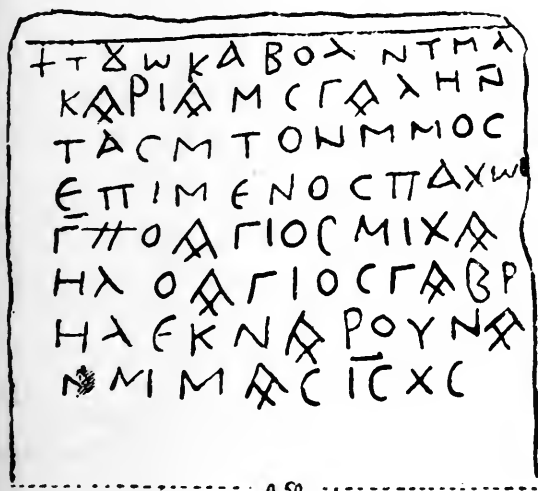 +ΤȢωΚΑΒΟΛΝΤΜΛ
ΚΑΡΙΑΜϹΓΑΛΗΝ̄
ΤΑϹΜΤΟΝΜΜΟϹ
ΕΠΙΜΕΝΟϹΠΑΧω
Γ̄⳥ΟΑΓΙΟϹΜΙΧΑ
ΗΛΟΑΓΙΟϹΓΑΒΡ
ΗΛΕΚΝΑΡΟΥΝΑ
ΝΜΙΜΑϹ Ι̅Ϲ̅ ΧϹ